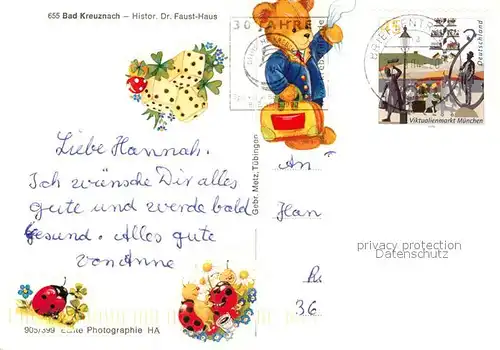 655 Bad Kreuznach – Histor. Dr. Faust-Haus
30 JAHRE
BRIEFZENTR
Deutschland
Viktualienmarkt München
Liebe Hannah.
Ich wünsche Dir alles
gute und werde bald
gesund. Alles gute
von Anne
Gebr. Metz, Tübingen
An
Han
36
privacy protection
Datenschutz
905/399 Echte Photographie HA